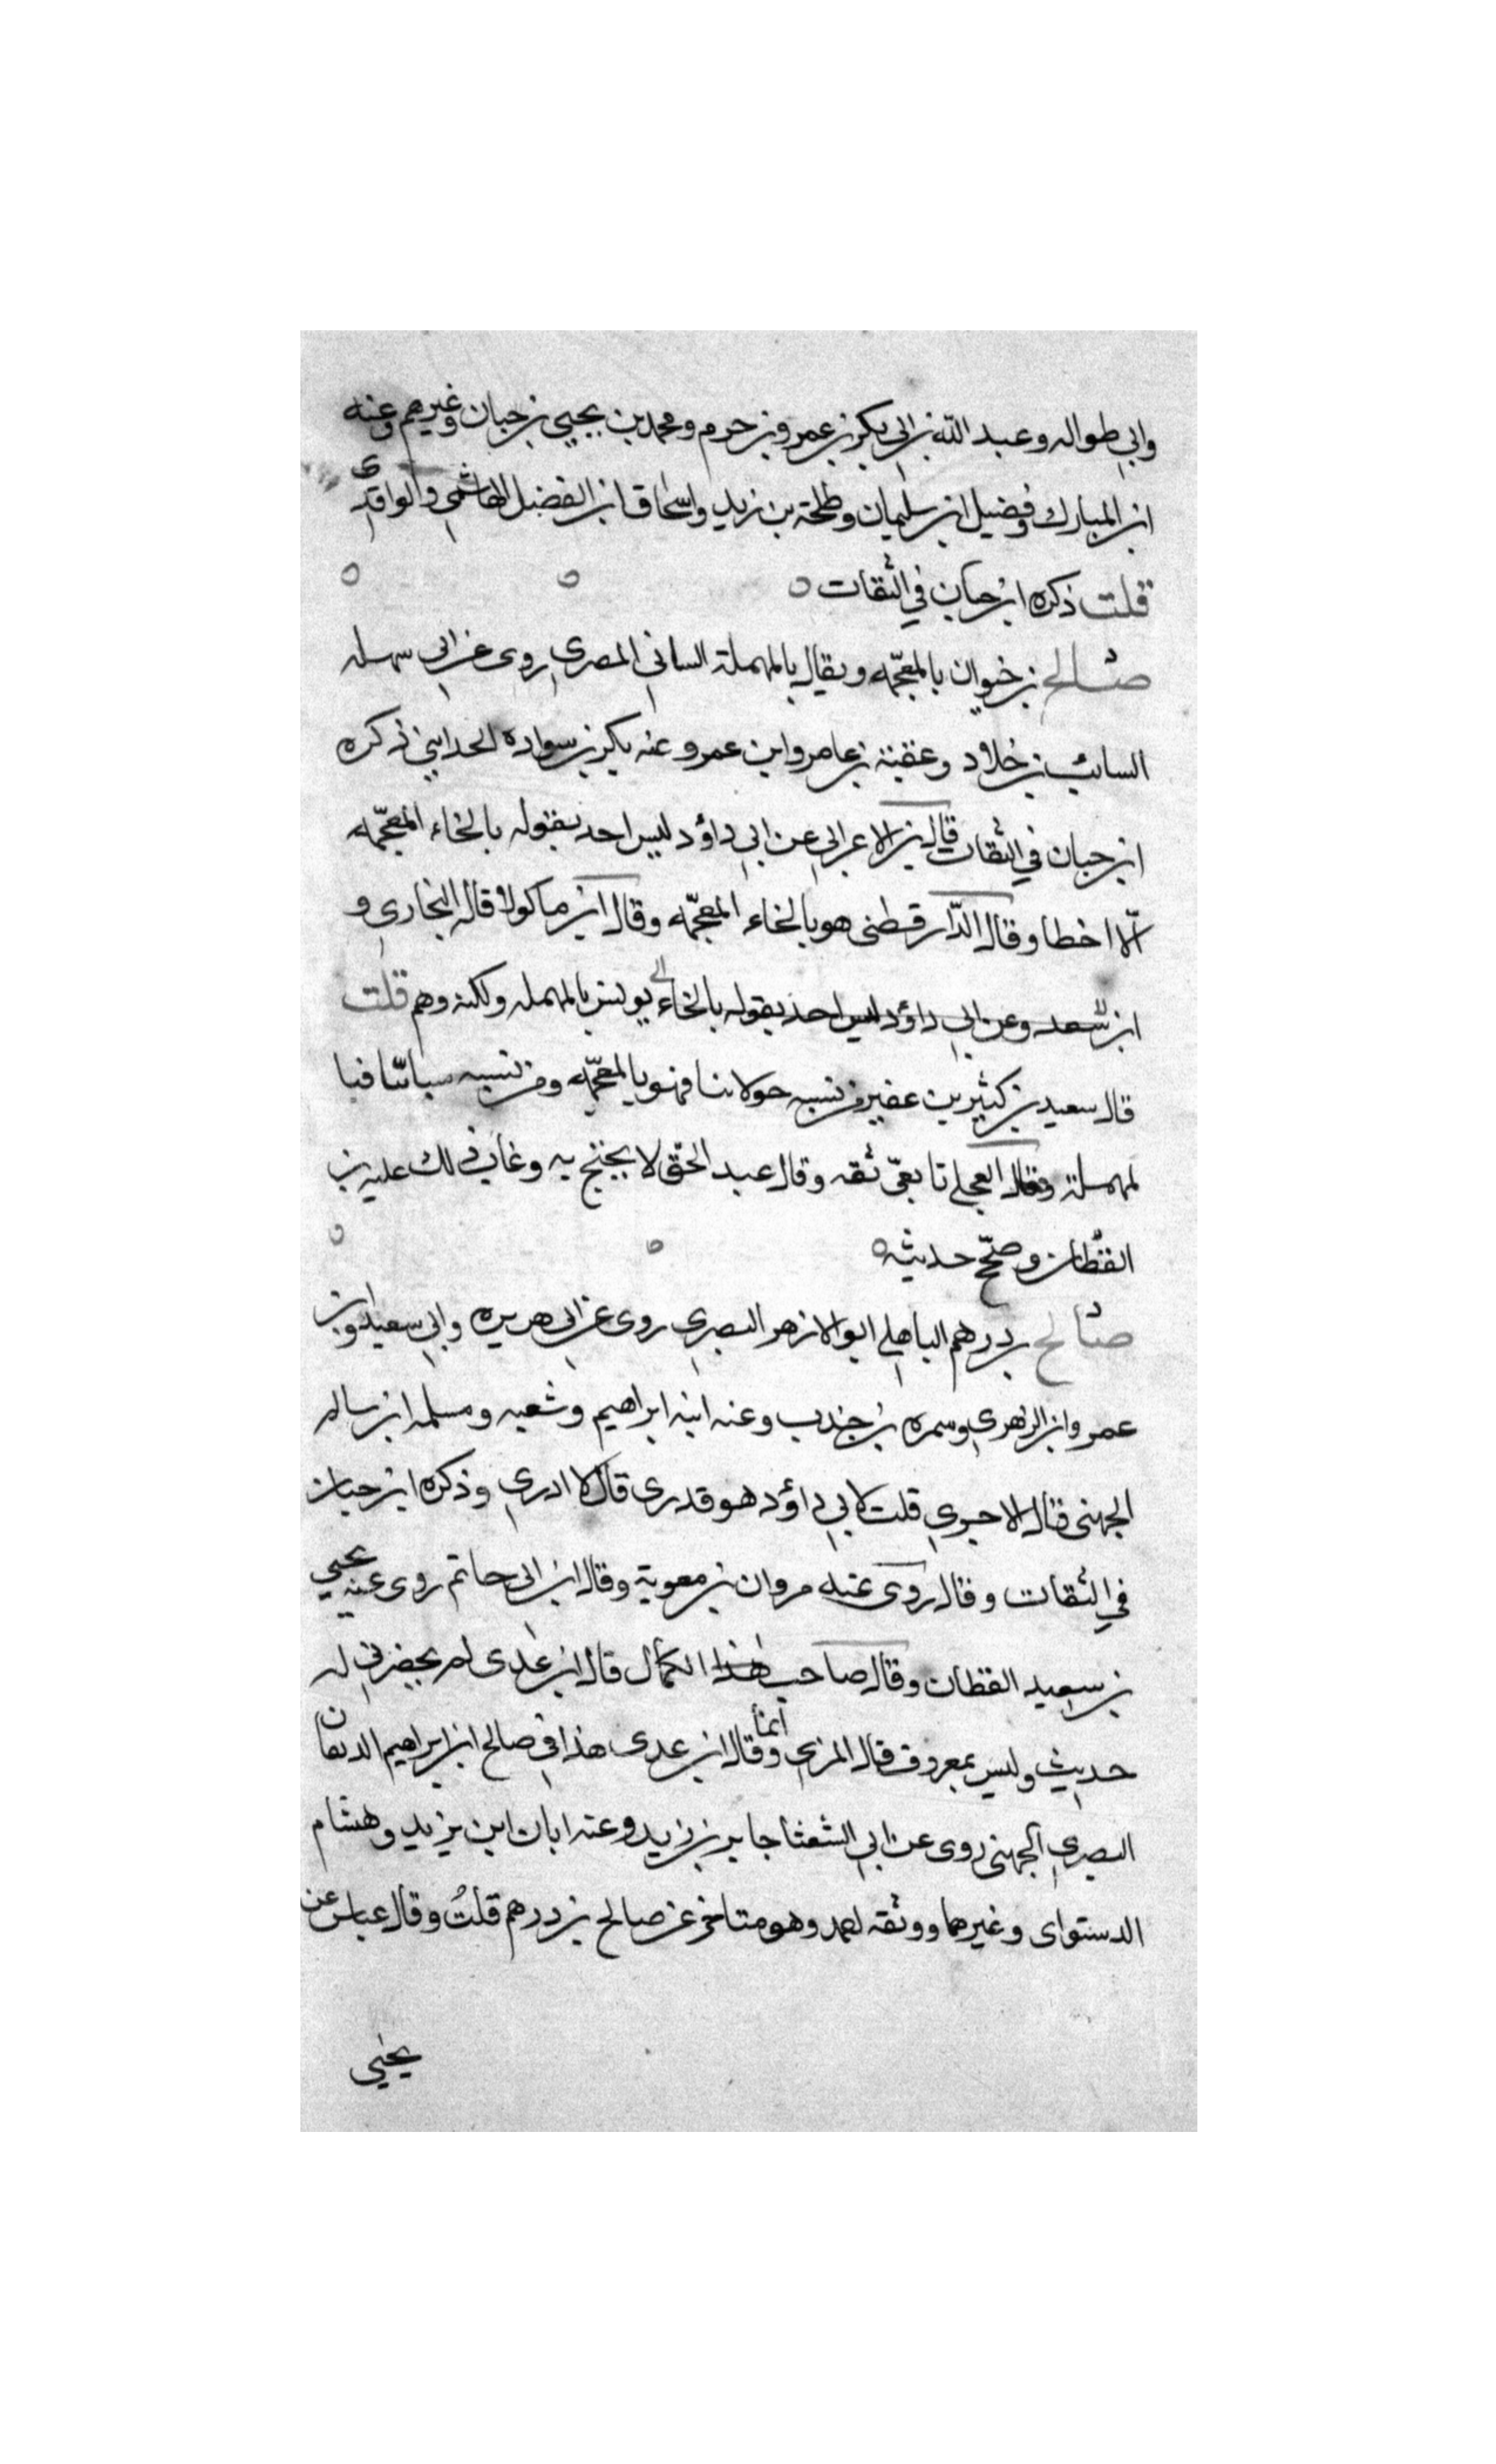 وابي طواله وعبد الله بن ابي بكر بن عمرو بن حرم ومحمد بن يحيى بن حبان وغيرهم وعنه
ابن المبارك وفضيل ابن سليمان وطلحة بن زيد واسحاق ابن الفضل الهاشمي والواقدي
قلت ذكره ابن حبان في الثقات
صالح بن خيوان بالمعجمه ويقال بالمهملة الساني المصري روى عن ابي سهله
السائب بن خلاد وعقبة بن عامر وابن عمر وعنه بكر بن سواده الحدابيني ذكره
ابن حبان في الثقات قال بن الاعرابي عن ابي داؤد ليس احد يقوله بالخاء المعجمه
الا اخطا وقال الدارقطنى هو بالخاء المعجمه وقال ابن ماكولا قاله البخاري و
ابن سعد وعن ابي داؤد ليس احد يقوله بالخاء يونس بالمهمله ولكنه وهم قلت
قال سعيد بن كثير بن عفير من نسبه حولاننا فهو بالمعجمه ومن نسبه سباننا فبا
لمهملة وقال العجلي تابعي ثقه وقال عبد الحق لا يحتج به وعاب ذلك عليه بن
القطان وصحح حديثه
صالح بن درهم الباهلي ابو الازهر البصري روى عن ابي هريره وابي سعيد وابن
عمر وابن الزهري وسمره بن جندب وعنه ابنه ابراهيم وشعبه ومسلمه ابن سالم
الجهنى قال الاجري قلت لابي داؤد هو قدرى قال لا ادري وذكره ابن حبان
في الثقات وقال روى عنه مروان بن معوية وقال ابن ابي حاتم روى عنه يحيى
بن سعيد القطان وقال صاحب هذا الكمال قال ابن عدى لم يحضرني له
حديث وليس بمعروف قال المزي وقال ابن عدى هذا في صالح ابن ابراهيم الدهان
البصري الجهنى روى عن ابي الشعثا جابر بن زيد وعنه ابان ابن يزيد وهشام
الدستواى وغيرهما ووثقه احمد وهو متاخر عن صالح بن درهم قلت وقال عباس عن
يحيى